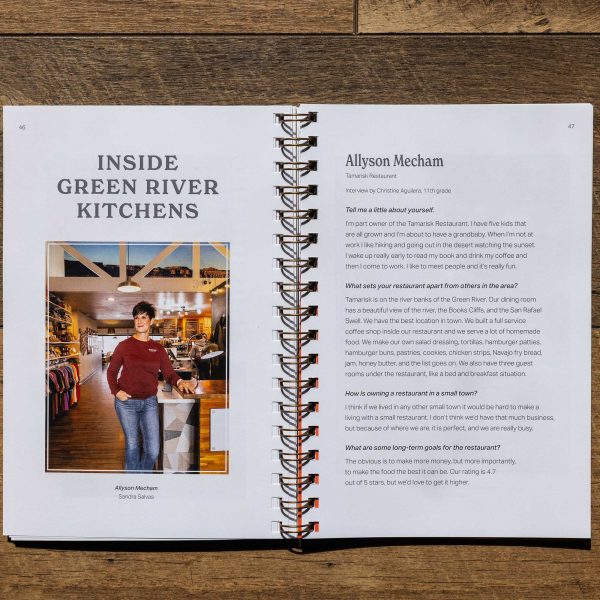 46
INSIDE
GREEN RIVER
KITCHENS
Allyson Mecham
Sandra Salvas
47
Allyson Mecham
Tamarisk Restaurant
Interview by Christine Aguilera, 11th grade
Tell me a little about yourself.
I'm part owner of the Tamarisk Restaurant. I have five kids that
are all grown and I'm about to have a grandbaby. When I'm not at
work I like hiking and going out in the desert watching the sunset.
I wake up really early to read my book and drink my coffee and
then I come to work. I like to meet people and it's really fun.
What sets your restaurant apart from others in the area?
Tamarisk is on the river banks of the Green River. Our dining room
has a beautiful view of the river, the Books Cliffs, and the San Rafael
Swell. We have the best location in town. We built a full service
coffee shop inside our restaurant and we serve a lot of homemade
food. We make our own salad dressing, tortillas, hamburger patties,
hamburger buns, pastries, cookies, chicken strips, Navajo fry bread,
jam, honey butter, and the list goes on. We also have three guest
rooms under the restaurant, like a bed and breakfast situation.
How is owning a restaurant in a small town?
I think if we lived in any other small town it would be hard to make a
living with a small restaurant. I don't think we'd have that much business,
but because of where we are, it is perfect, and we are really busy.
What are some long-term goals for the restaurant?
The obvious is to make more money, but more importantly,
to make the food the best it can be. Our rating is 4.7
out of 5 stars, but we'd love to get it higher.